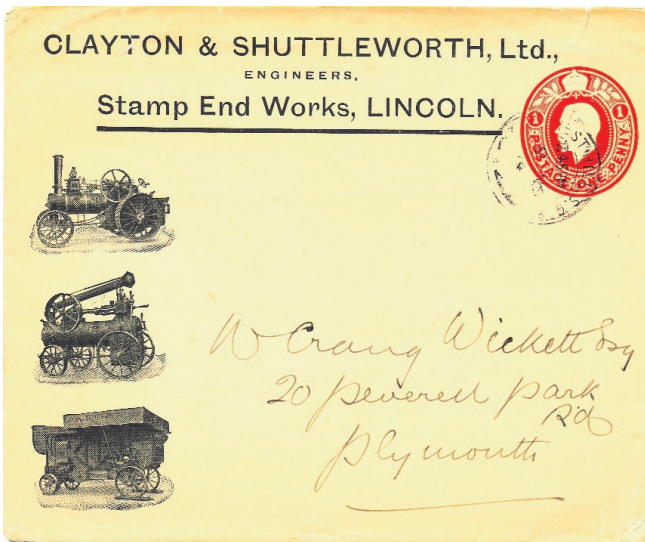 CLAYTON & SHUTTLEWORTH, Ltd.,
ENGINEERS,
Stamp End Works, LINCOLN.
1 1
POSTAGE ONE PENNY
W Craug Wickett Esq
20 peverell park
Rd
Plymouth